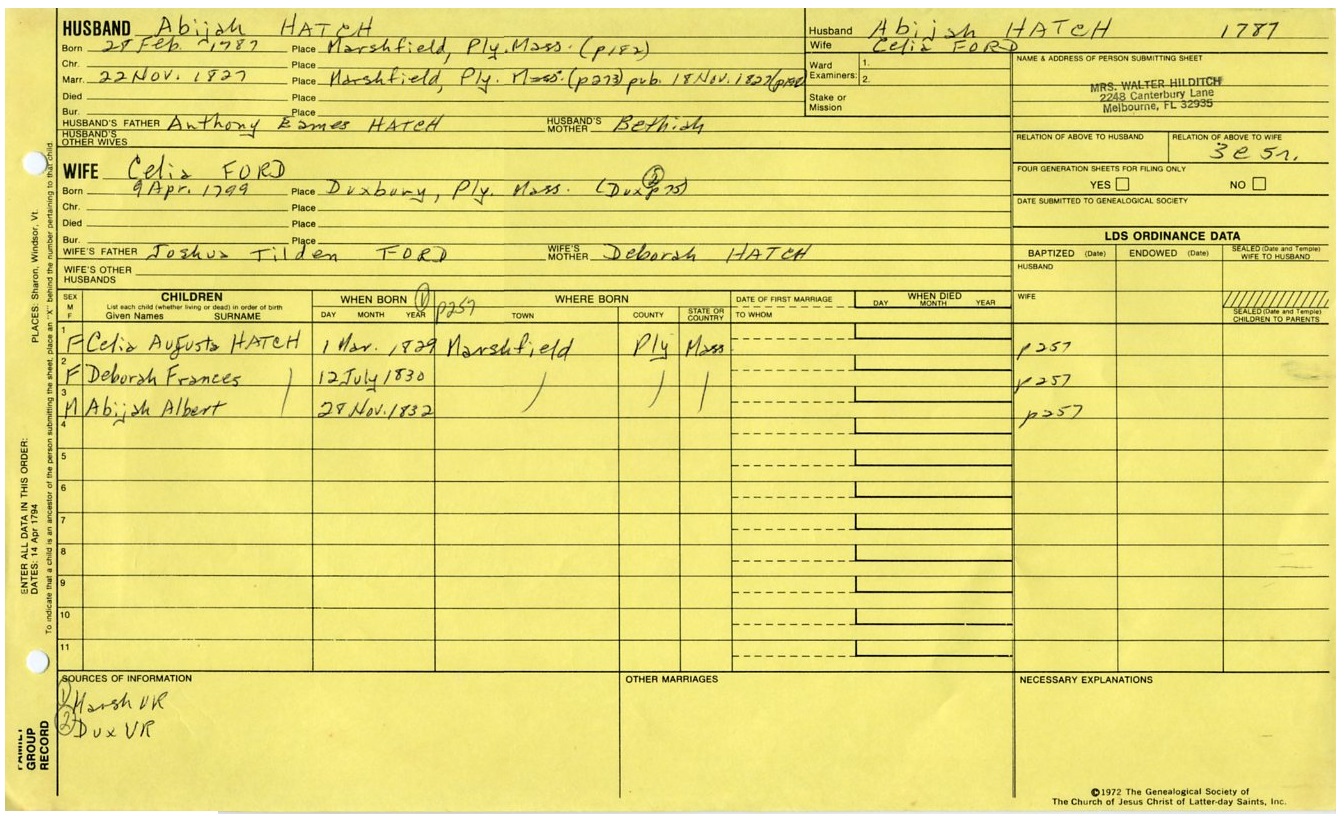 HUSBAND Abijah HATCH
Born 28 Feb. 1787 Place Marshfield, Ply. Mass. (p182)
Chr. Place
Marr. 22 Nov. 1827 Place Marshfield, Ply. Mass. (p273) pub. 18 Nov. 1827
Died Place
Bur. Place
HUSBAND'S FATHER Anthony Eames HATCH HUSBAND'S MOTHER Bethiah
HUSBAND'S OTHER WIVES
WIFE Celia FORD
Born 9 Apr. 1799 Place Duxbury, Ply. Mass. (Dux p75) ②
Chr. Place
Died Place
Bur. Place
WIFE'S FATHER Joshua Tilden FORD WIFE'S MOTHER Deborah HATCH
WIFE'S OTHER HUSBANDS
Husband Abijah HATCH 1787
Wife Celia FORD
Ward Examiners: 1.
2.
Stake or Mission
NAME & ADDRESS OF PERSON SUBMITTING SHEET
MRS. WALTER HILDITCH
2248 Canterbury Lane
Melbourne, FL 32935
RELATION OF ABOVE TO HUSBAND RELATION OF ABOVE TO WIFE
FOUR GENERATION SHEETS FOR FILING ONLY
YES NO
DATE SUBMITTED TO GENEALOGICAL SOCIETY
LDS ORDINANCE DATA
BAPTIZED (Date) ENDOWED (Date) SEALED (Date and Temple) WIFE TO HUSBAND
HUSBAND
WIFE
SEALED (Date and Temple) CHILDREN TO PARENTS
SEX M F CHILDREN WHEN BORN ① p257 WHERE BORN DATE OF FIRST MARRIAGE WHEN DIED
List each child (whether living or dead) in order of birth
Given Names SURNAME DAY MONTH YEAR TOWN COUNTY STATE OR COUNTRY TO WHOM DAY MONTH YEAR
1 F Celia Augusta HATCH 1 Mar. 1829 Marshfield Ply Mass. p257
2 F Deborah Frances 12 July 1830 p257
3 M Abijah Albert 28 Nov. 1832 p257
4
5
6
7
8
9
10
11
SOURCES OF INFORMATION OTHER MARRIAGES NECESSARY EXPLANATIONS
① Marsh VR
② Dux VR
©1972 The Genealogical Society of
The Church of Jesus Christ of Latter-day Saints, Inc.
ENTER ALL DATA IN THIS ORDER:
DATES: 14 Apr 1794
PLACES: Sharon, Windsor, Vt.
To indicate that a child is an ancestor of the person submitting the sheet, place an "X" behind the number pertaining to that child.
FAMILY GROUP RECORD